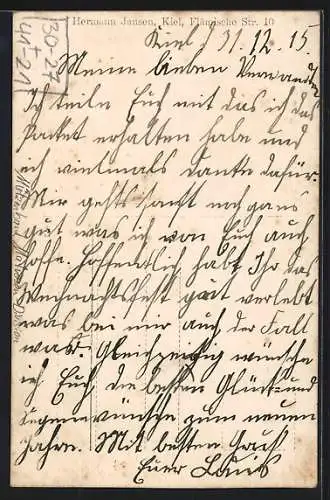 Hermann Jansen, Kiel, Flämische Str. 10
30-27
4-21
Kiel 31.12.15
Meine lieben Verwandten
Ich teile Euch mit das ich das
Packet erhalten habe und
ich vielmals danke dafür.
Mir gehts sonst noch ganz
gut was ich von Euch auch
hoffe. Hoffentlich habt Ihr das
Weihnachtsfest gut verlebt
was bei mir auch der Fall
war. Gleichzeitig wünsche
ich Euch die besten Glück- und
Segenwünsche zum neuen
Jahre. Mit besten Gruß
Euer Louis